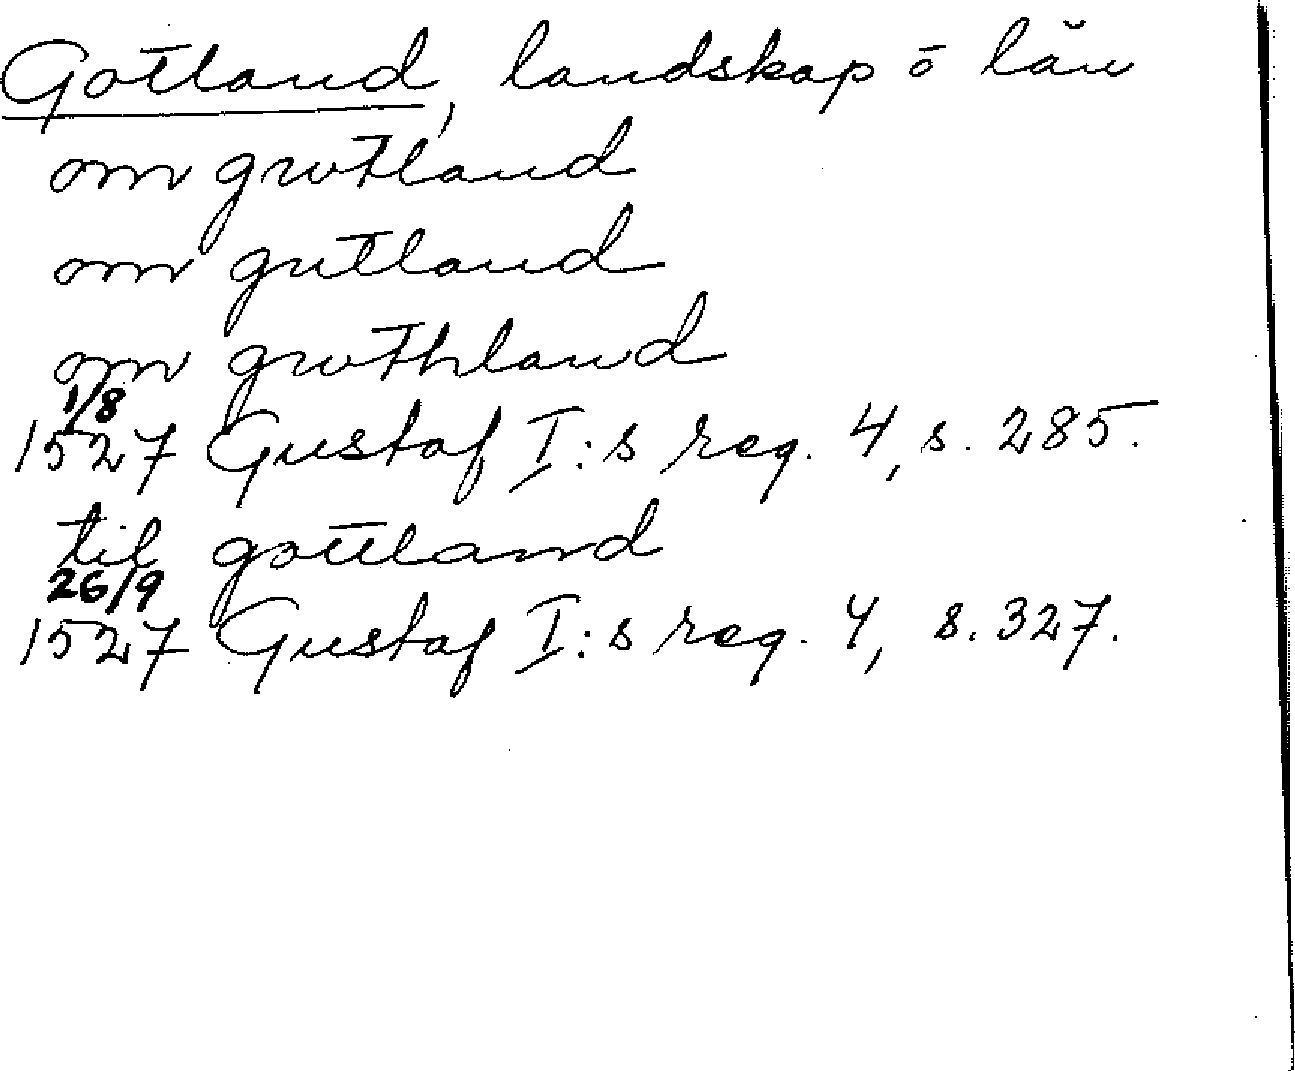 Gotland, landskap o län
om gwtland
om gutland
om gwthland
1/8
1527 Gustaf I:s reg. 4, s. 285.
til gottland
26/9
1527 Gustaf I:s reg. 4, s. 327.